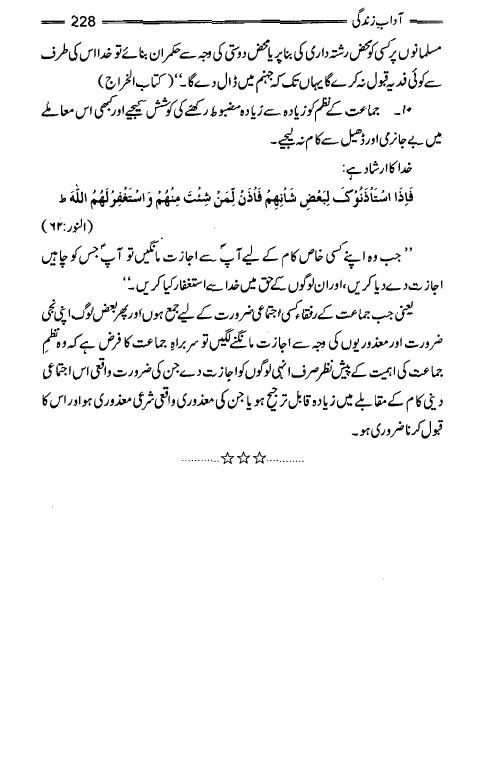 آداب زندگی 228
مسلمانوں پر کسی کو محض رشتہ داری کی بنا پر یا محض دوستی کی وجہ سے حکمران بنائے تو خدا اس کی طرف
سے کوئی فدیہ قبول نہ کرے گا یہاں تک کہ جہنم میں ڈال دے گا۔‘‘ (کتاب الخراج)
۱۰۔ جماعت کے نظم کو زیادہ سے زیادہ مضبوط رکھنے کی کوشش کیجیے اور کبھی اس معاملے
میں بے جا نرمی اور ڈھیل سے کام نہ لیجیے۔
خدا کا ارشاد ہے:
فَاِذَا اسْتَاْذَنُوْکَ لِبَعْضِ شَاْنِهِمْ فَاْذَنْ لِّمَنْ شِئْتَ مِنْهُمْ وَاسْتَغْفِرْلَهُمُ اللّٰهَ ط
(النور:۶۲)
’’جب وہ اپنے کسی خاص کام کے لیے آپؐ سے اجازت مانگیں تو آپؐ جس کو چاہیں
اجازت دے دیا کریں، اور ان لوگوں کے حق میں خدا سے استغفار کیا کریں۔‘‘
یعنی جب جماعت کے رفقاء کسی اجتماعی ضرورت کے لیے جمع ہوں اور پھر بعض لوگ اپنی نجی
ضرورت اور معذوریوں کی وجہ سے اجازت مانگنے لگیں تو سربراہِ جماعت کا فرض ہے کہ وہ نظمِ
جماعت کی اہمیت کے پیش نظر صرف انہی لوگوں کو اجازت دے جن کی ضرورت واقعی اس اجتماعی
دینی کام کے مقابلے میں زیادہ قابل ترجیح ہو یا جن کی معذوری واقعی شرعی معذوری ہو اور اس کا
قبول کرنا ضروری ہو۔
............☆☆☆............